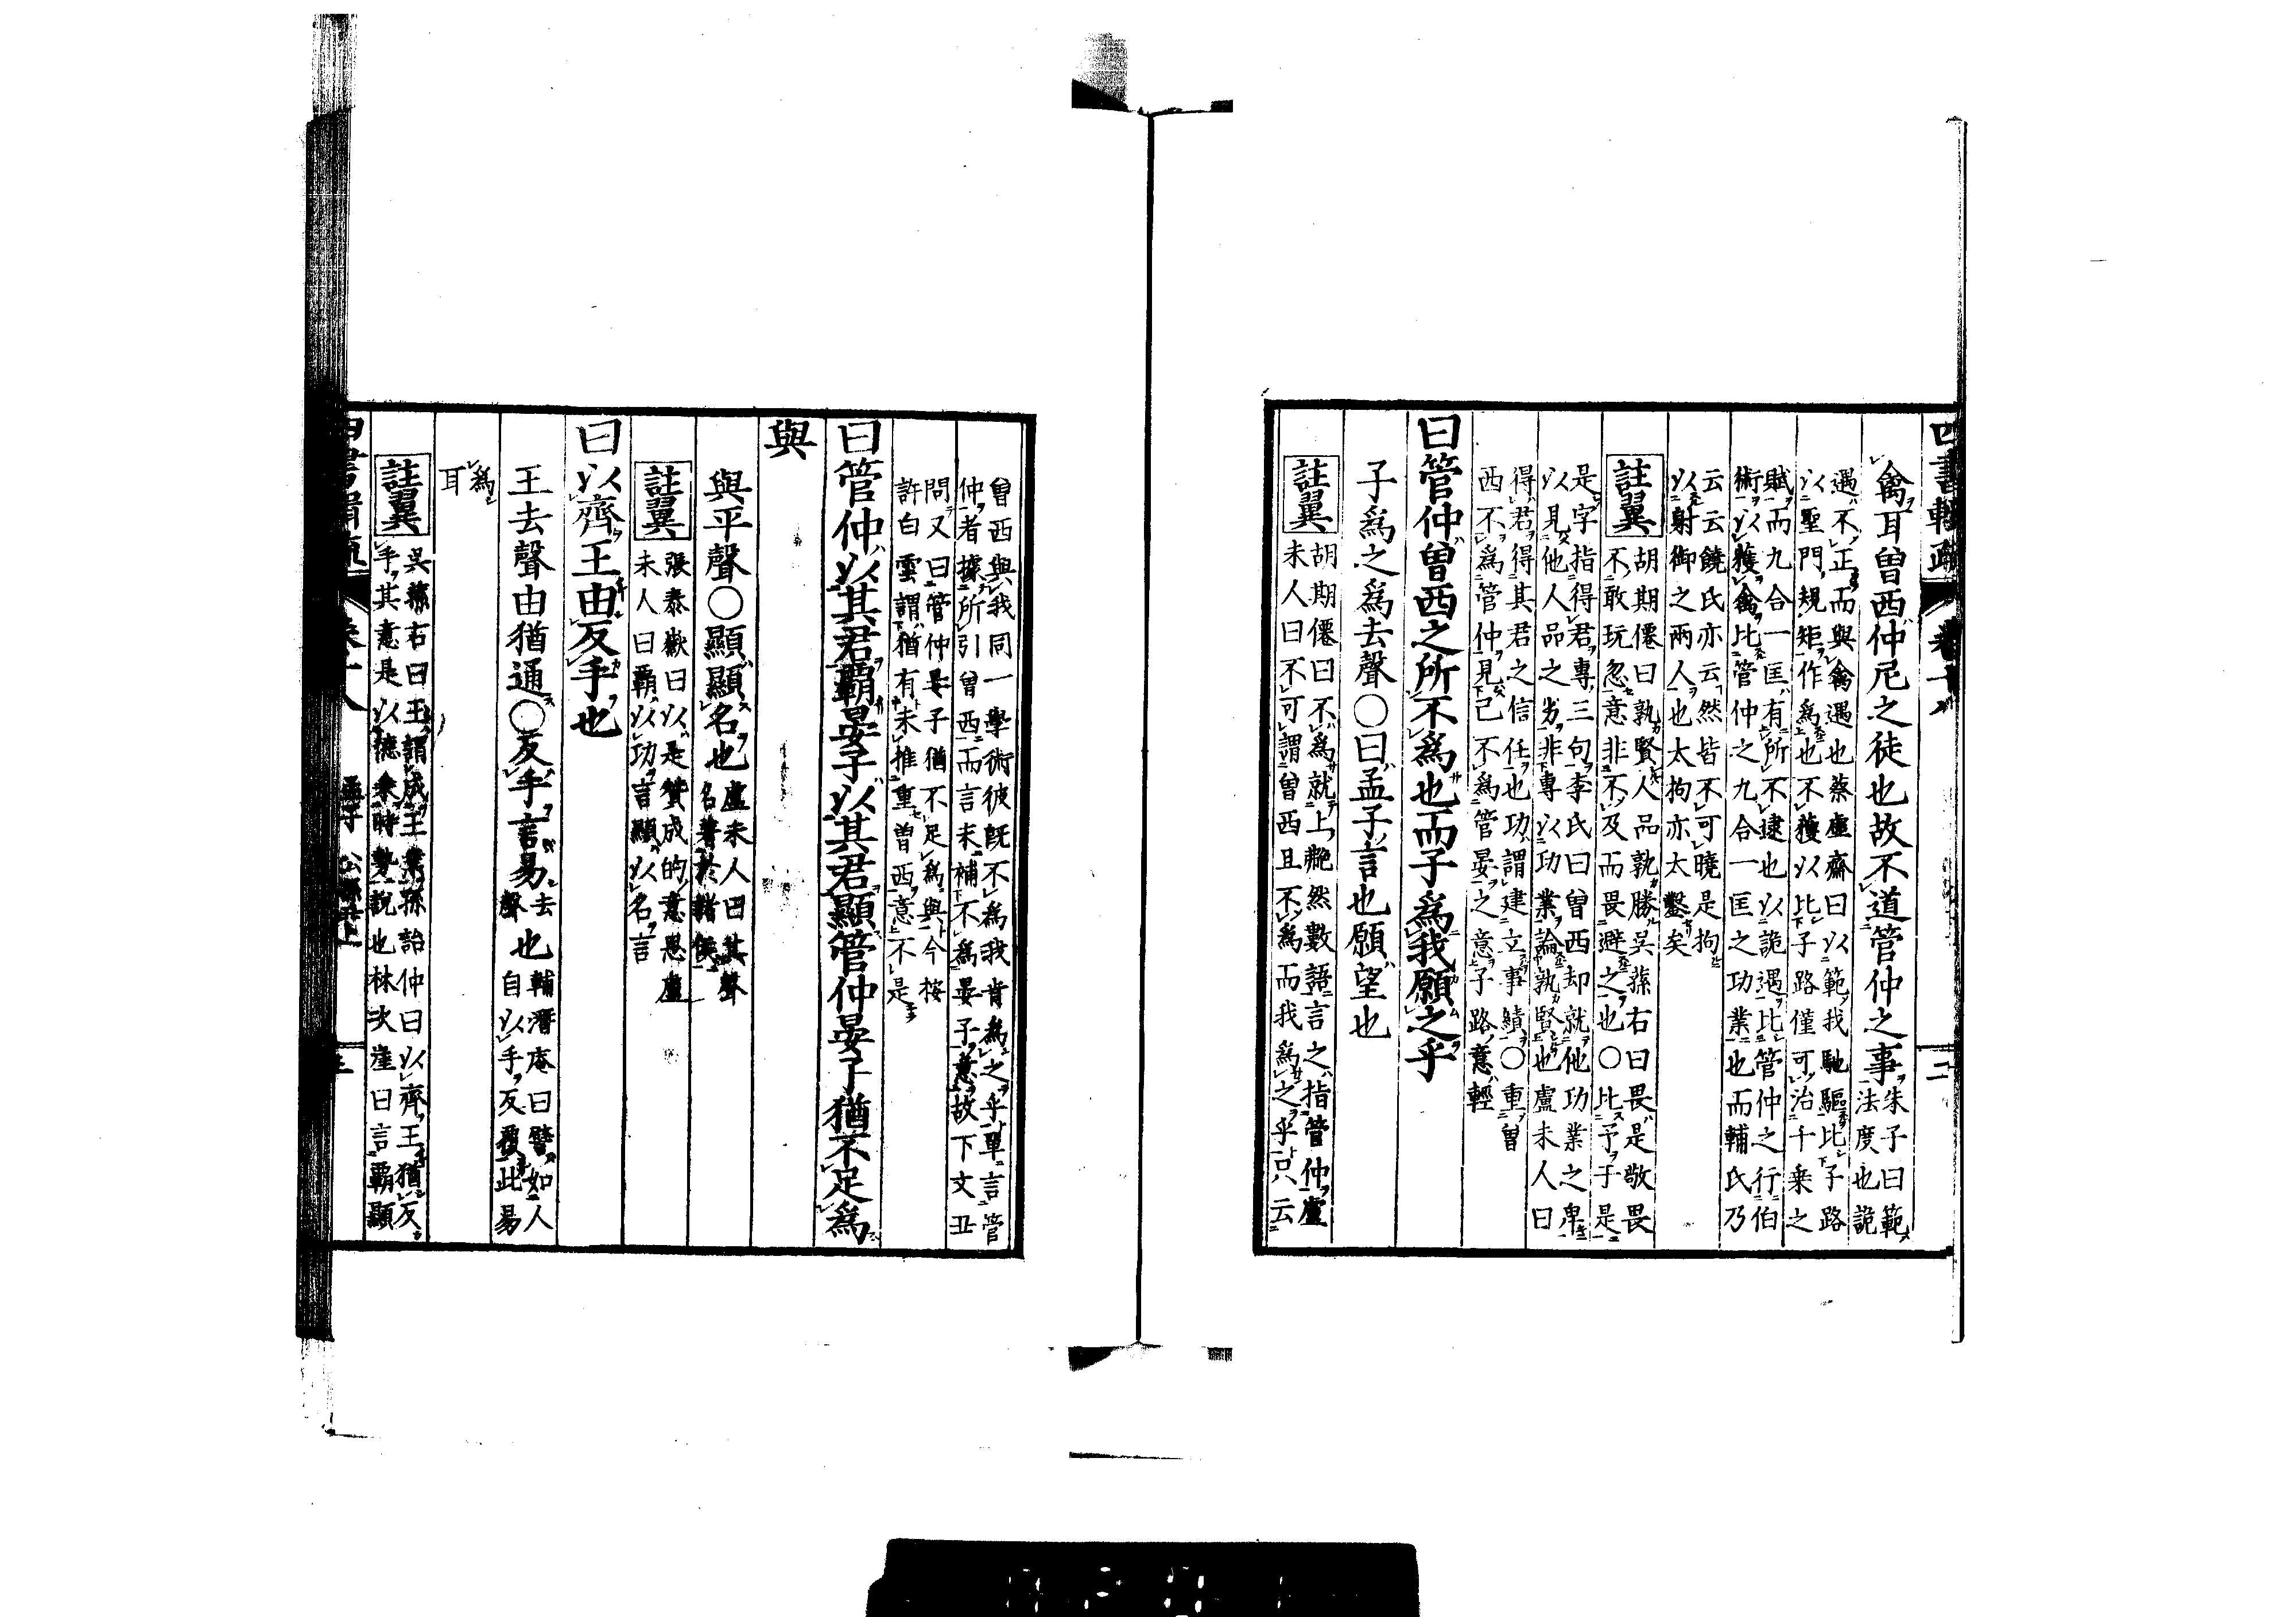 四書輯疏 卷十八 二
禽耳曾西仲尼之徒也故不道管仲之事朱子曰範
法度也詭
遇不正而與禽遇也蔡虛齋曰以範我馳驅比子路
以聖門規矩作爲也不獲以比子路僅可治千乗之
賦而九合一匡有所不逮也以詭遇比管仲之行伯
術以獲禽比管仲之九合一匡之功業也而輔氏乃
云云饒氏亦云然皆不可曉是拘
以射御之兩人也太拘亦太鑿矣
註翼
胡期僊曰孰賢人品孰勝吳蓀右曰畏是敬畏
不敢玩忽意非不及而畏避之也○比予于是
是字指得君專三句李氏曰曾西却就他功業之卑
以見他人品之劣非專以功業論孰賢也盧未人曰
得君得其君之信任也功謂建立事績○重曾
西不爲管仲見己不爲管晏之意子路意輕
曰管仲曾西之所不爲也而子爲我願之乎
子爲之爲去聲○曰孟子言也願望也
註翼
胡期僊曰不爲就上艴然數語言之指管仲盧
未人曰不可謂曾西且不爲而我爲之乎只云
曾西與我同一學術彼既不爲我肯爲之乎單言管
仲者據所引曾西而言未補不爲晏子意故下文丑
問又曰管仲晏子猶不足爲與今按
許白雲謂猶有未推重曾西意不是
曰管仲以其君霸晏子以其君顯管仲晏子猶不足爲
與
與平聲○顯顯名也盧未人曰其聲
名著於諸侯
註翼
張泰嶽曰以是賛成的意思盧
未人曰霸以功言顯以名言
曰以齊王由反手也
王去聲由猶通○反手言易去聲也輔潛庵曰譬如人
自以手反覆此易
爲
耳
註翼
吳蓀右曰王謂成王業孫詒仲曰以齊王猶反
手其意是以德乗時勢說也林次崖曰言霸顯
四書輯疏 卷十八 孟子 公孫丑上 三